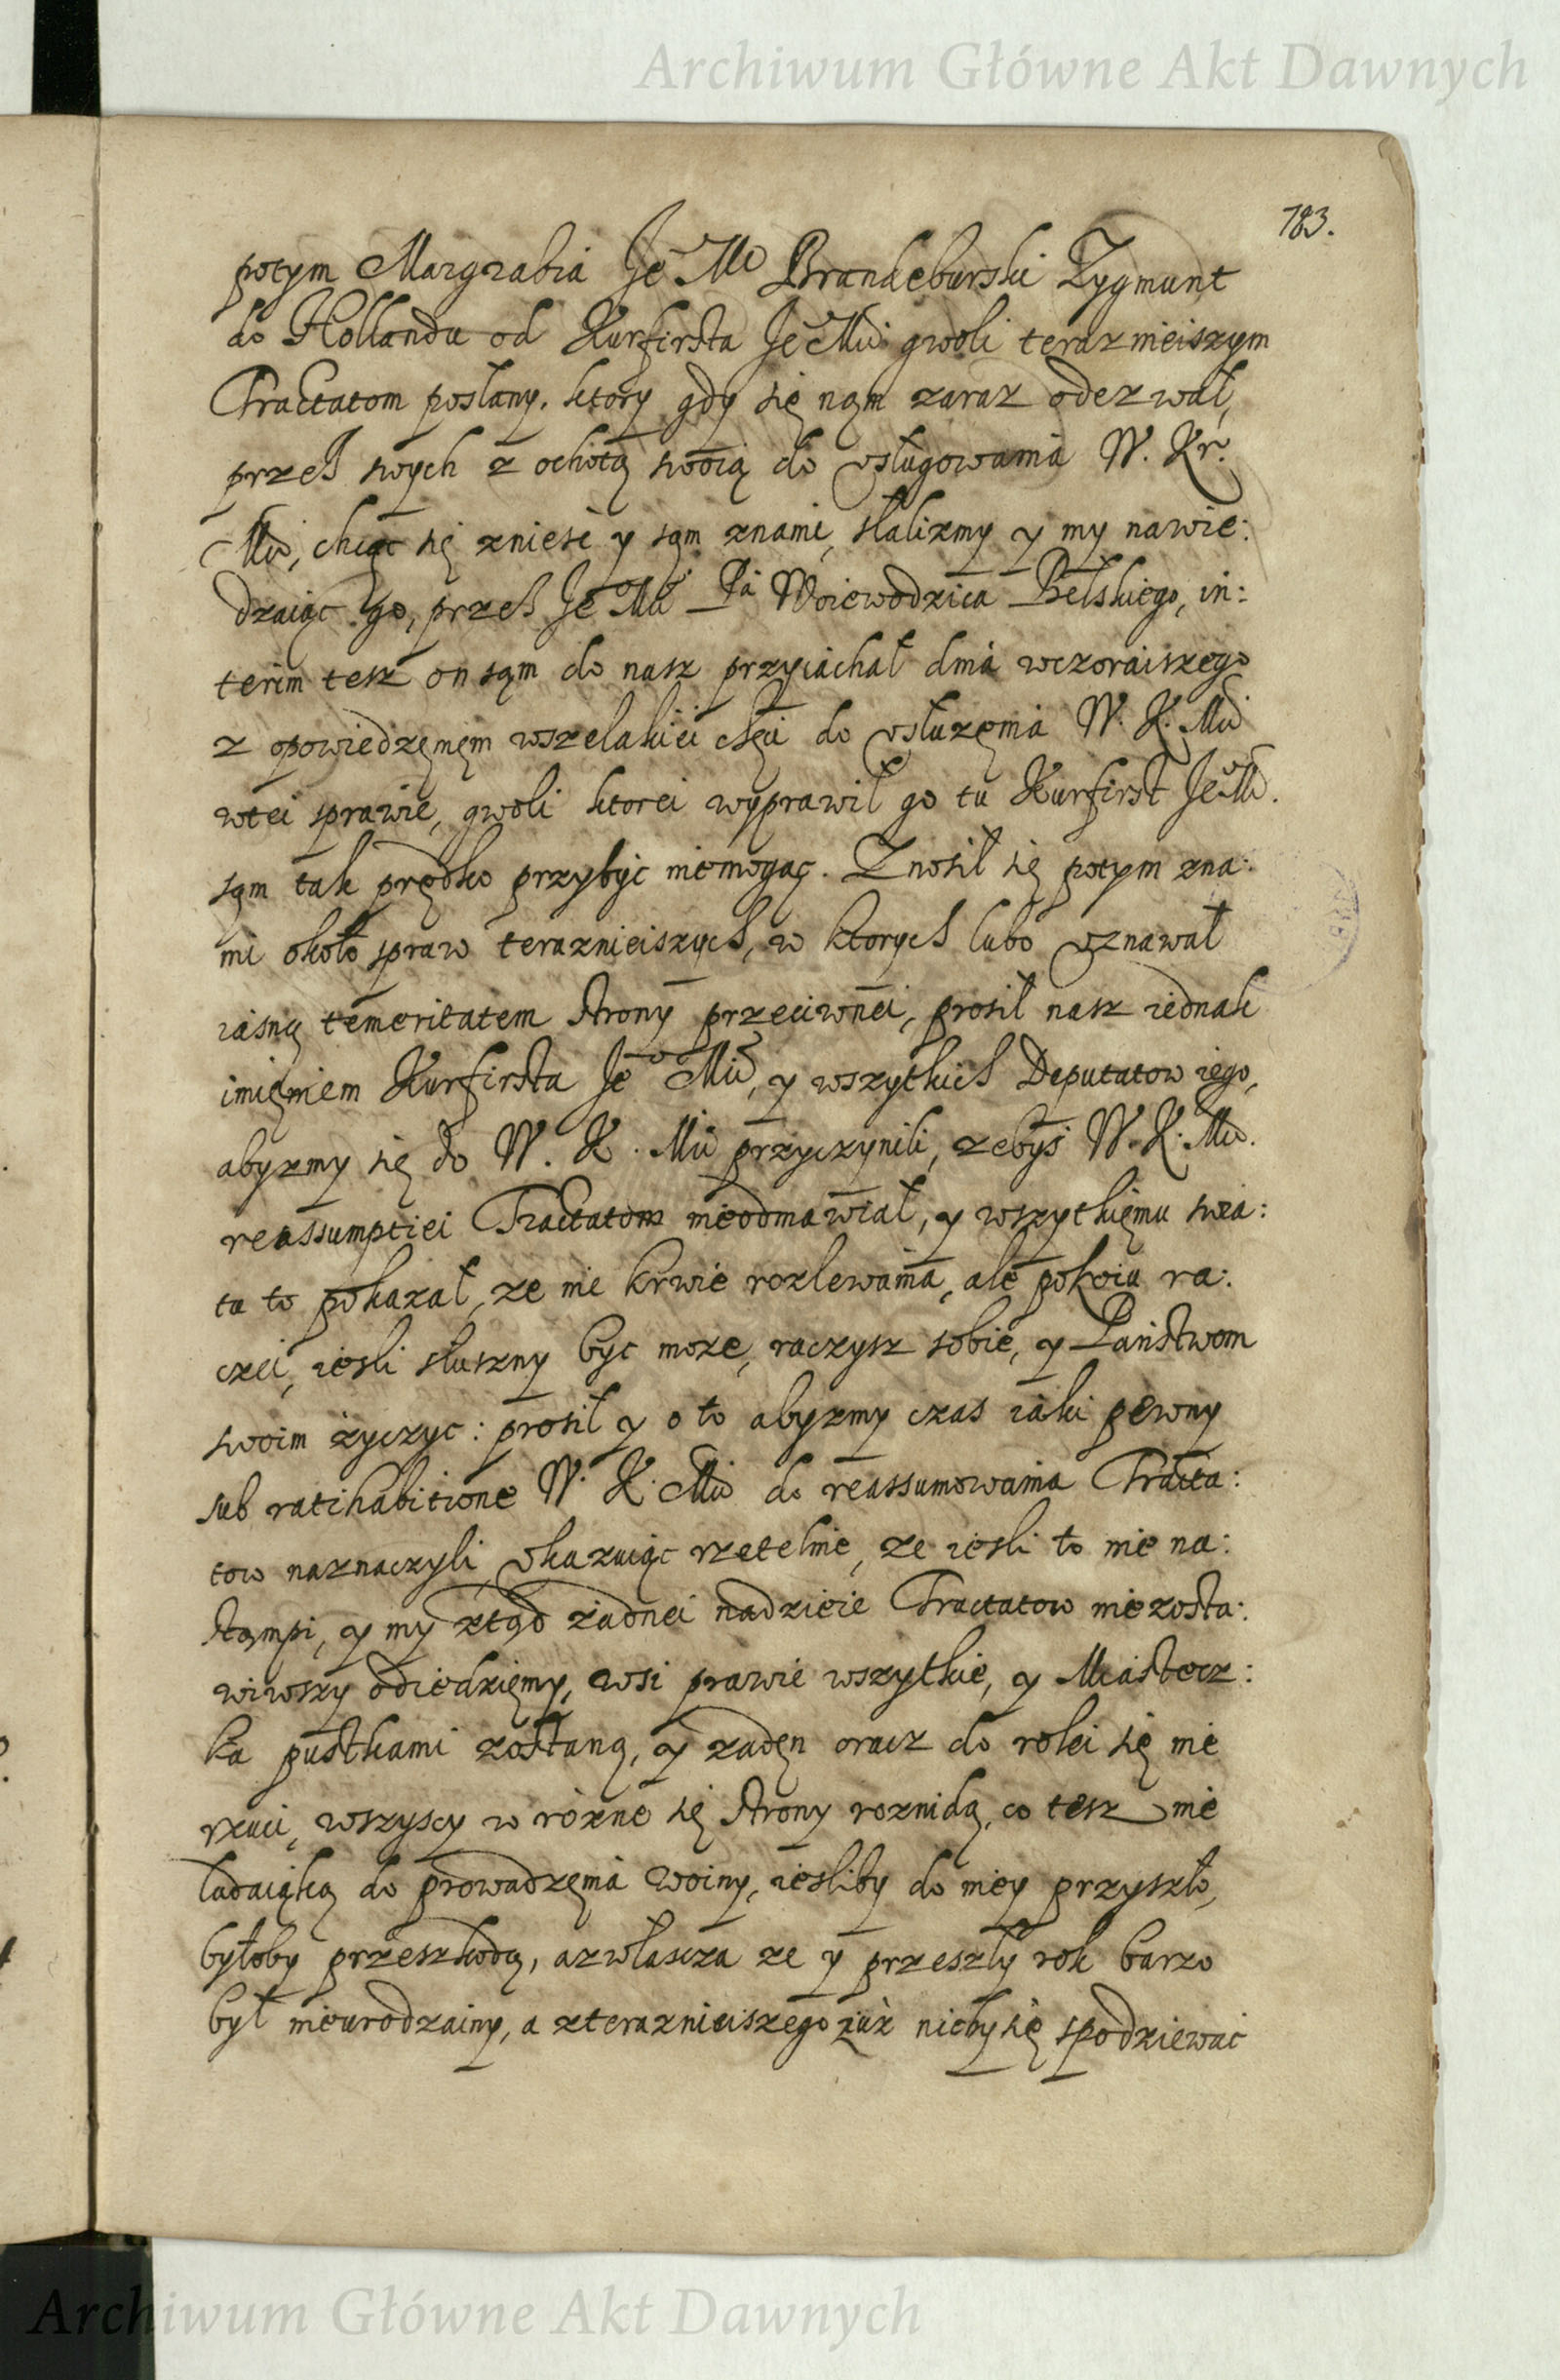 Archiwum Główne Akt Dawnych
783.
potym Margrabia Je° Mć Brandeburski Zygmunt
do Hollandu od Kurfirsta Je° Mći gwoli teraznieiszym
Tractatom posłany. ktory gdy się nąm zaraz odezwał,
przeß swych z ochotą swoią do vsługowania W. Kr.
Mći, chcąc się znieść y sąm znami, słalizmy y my nawie:
dzaiąc go, przeß Je° Mć Pa Woiewodzica Bełskiego, in:
terim tesz on sąm do nasz przyiachał dnia wczoraiszego
z opowiedzęnięm wszelakiei chęci do vsłuzęnia W. K. Mći
wtei sprawie, gwoli ktorei wyprawił go tu Kurfirst Je° Mć.
sąm tak prędko przybyc niemogąc. Znosił się potym zna:
mi około spraw teraznieiszych, w ktorych lubo vznawał
iasną temeritatem strony przeciwnei, prosił nasz iednak
imięniem Kurfirsta Je° Mći, y wszytkich Deputatow iego,
abyzmy się do W. K. Mći przyczynili, zebyś W. K. Mć.
reassumptiei Tractatom nieodmawiał, y wszytkięmu swia:
tu to pokazał, ze nie krwie rozlewania, ale pokoiu ra:
czei, iesli słuszny byc moze, raczysz sobie, y Państwom
swoim zyczyc: prosił y o to abyzmy czas iaki pewny
sub ratihabitione W. K. Mći do reassumowania Tracta:
tow naznaczyli, vkazuiąc rzetelnie, ze iesli to nie na:
stąmpi, y my ztąd zadnei nadzieie Tractatow niezosta:
wiwszy odiedzięmy, wsi prawie wszytkie, y Miastecz:
ka pustkami zostaną, y zadęn oracz do rolei się nie
rzuci, wszyscy w rózne się strony roznidą, co tesz nie
ladaiaką do prowadzęnia woiny, iesliby do niey przyszło,
byłoby przeszkodą, azwłascza ze y przeszły rok barzo
był nieurodzainy, a zteraznieiszego iuz niebysię spodziewac
Archiwum Główne Akt Dawnych